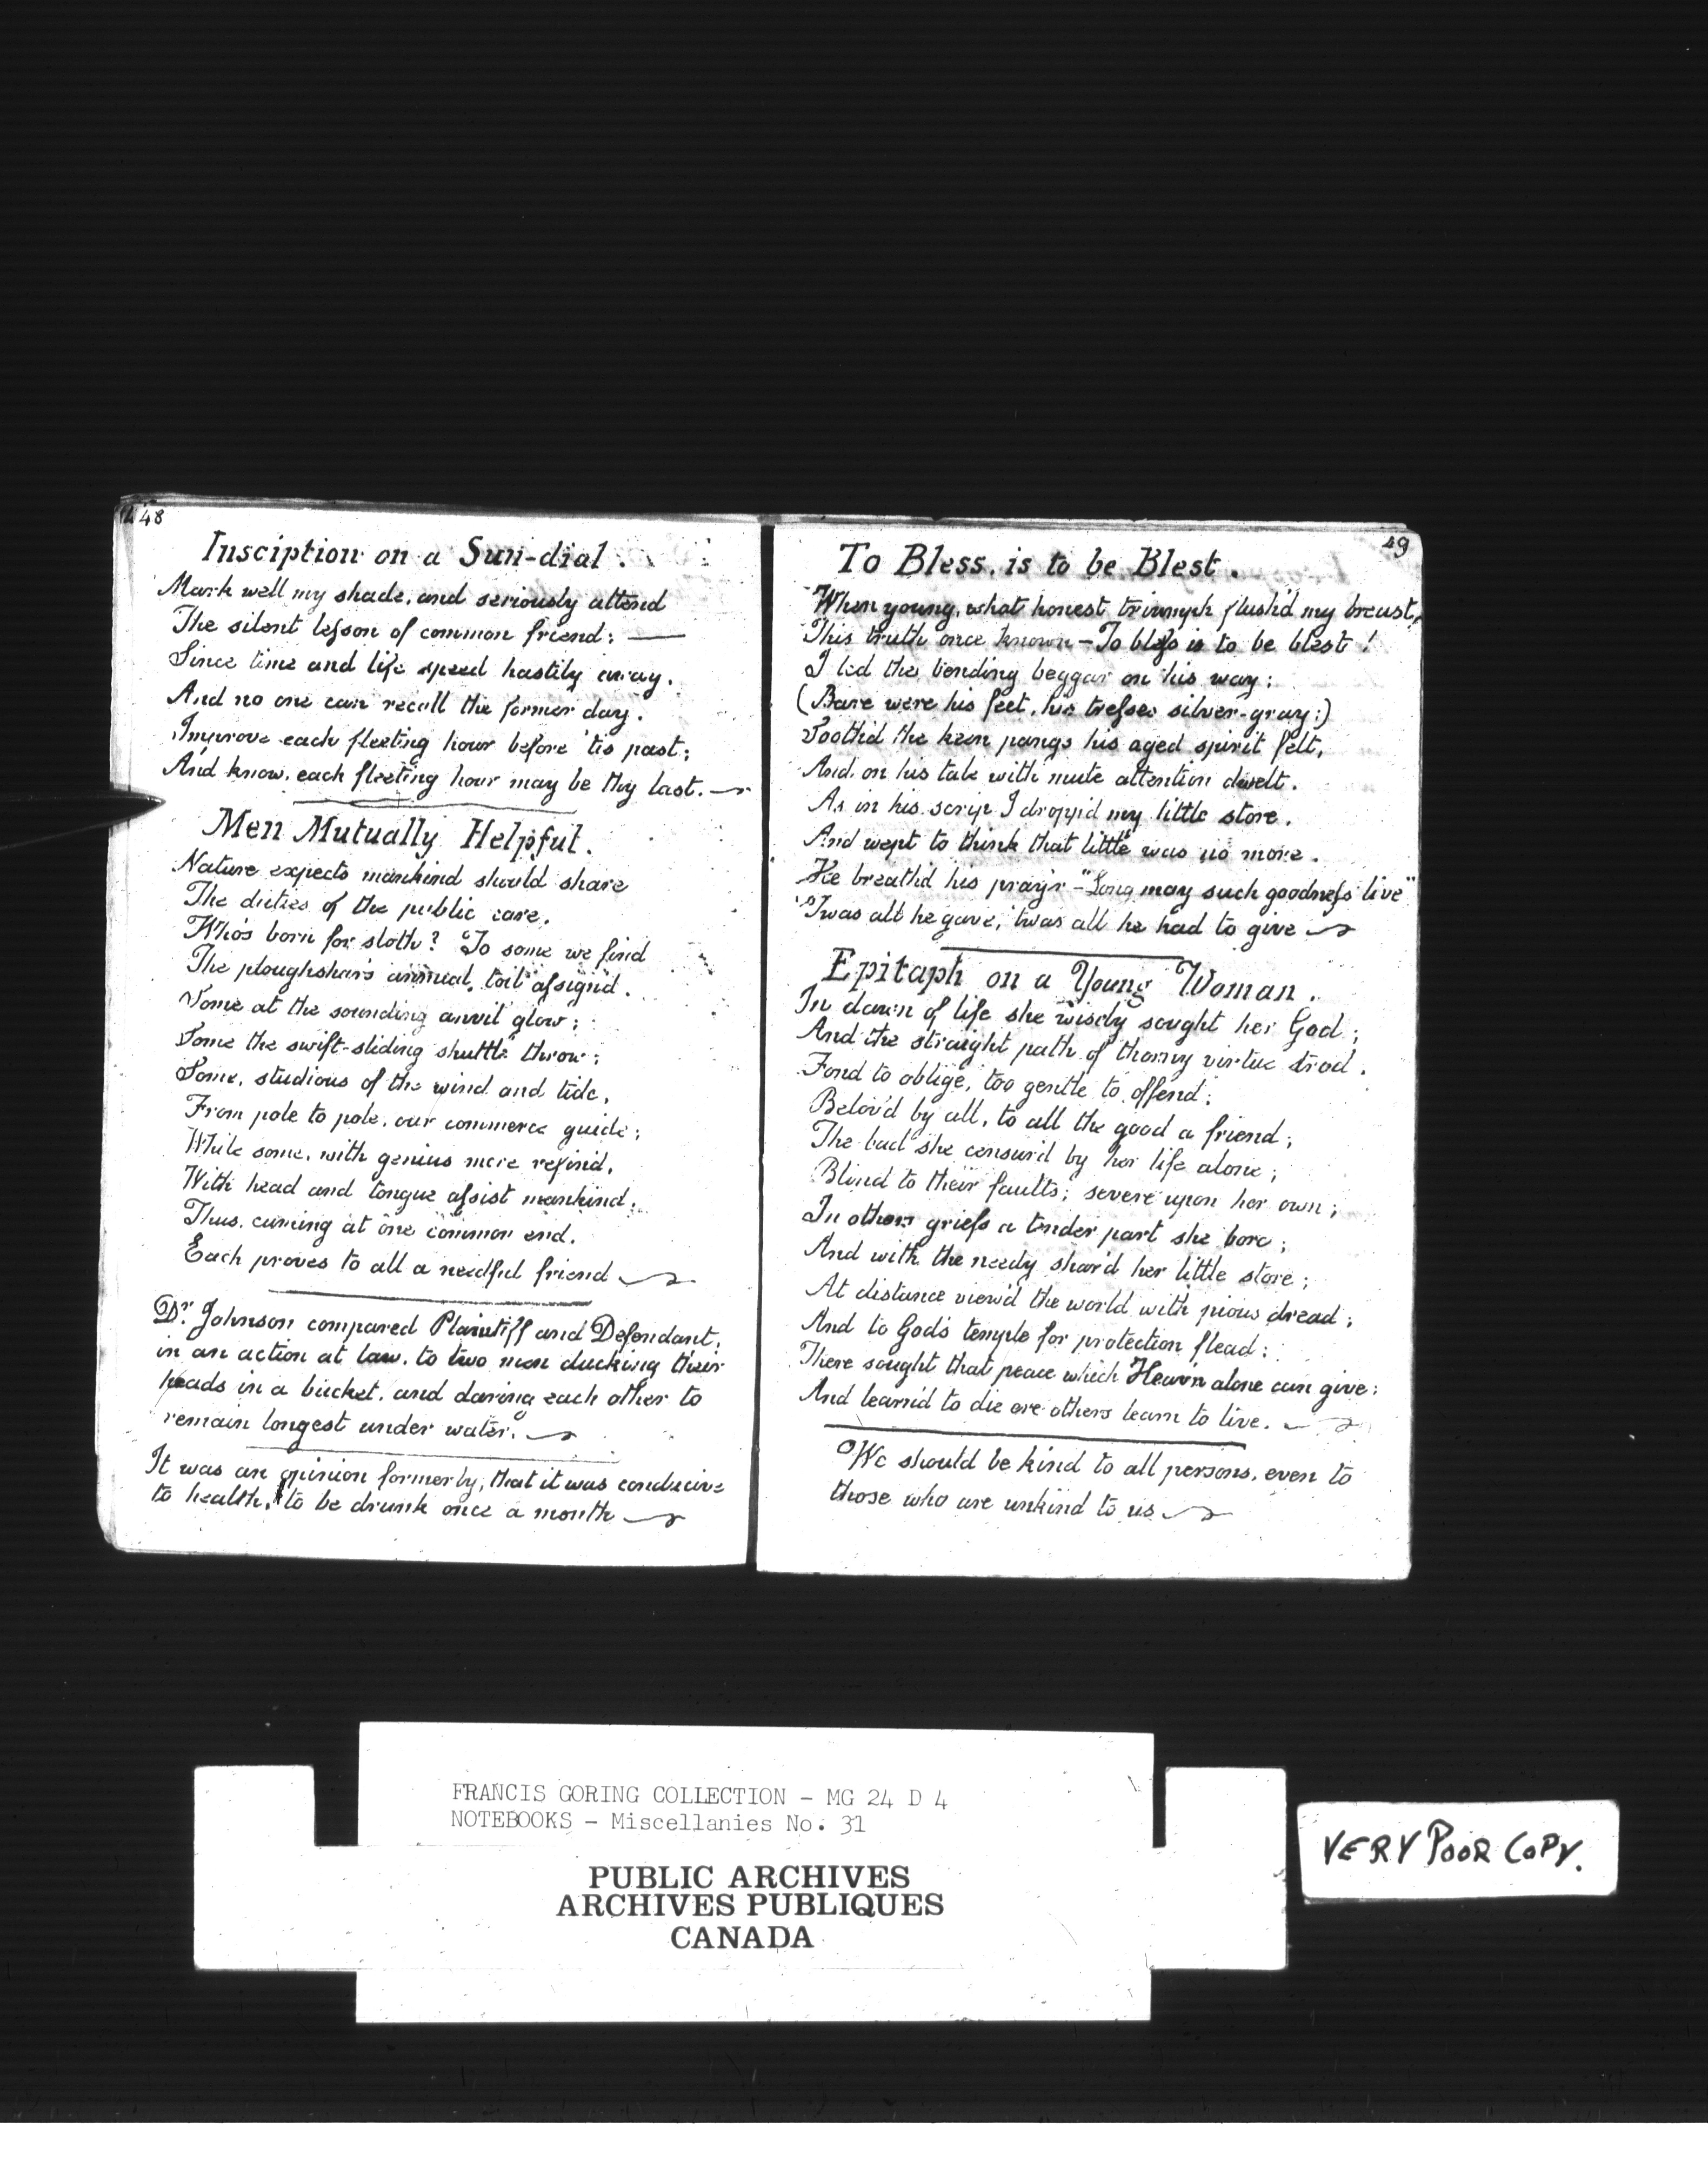 48
Insciption on a Sun-dial.
Mark well my shade, and seriously attend
The silent lesson of common friend: —
Since time and life speed hastily away,
And no one can recall the former day.
Improve each fleeting hour before 'tis past;
And know, each fleeting hour may be thy last.
Men Mutually Helpful.
Nature expects mankind should share
The duties of the public care.
Who's born for sloth? To some we find
The ploughshar's annual toil assign'd.
Some at the sounding anvil glow;
Some the swift-sliding shuttle throw;
Some, studious of the wind and tide,
From pole to pole, our commerce guide;
While some, with genius more refin'd,
With head and tongue assist mankind;
Thus, aiming at one common end,
Each proves to all a needful friend
Dr. Johnson compared Plaintiff and Defendant,
in an action at law, to two men ducking their
heads in a bucket, and daring each other to
remain longest under water.
It was an opinion formerly, that it was conducive
to health, to be drunk once a month
49
To Bless, is to be Blest.
When young, what honest triumph flush'd my breast,
This truth once known — To bless is to be blest!
I led the bending beggar on his way;
(Bare were his feet, his tresses silver-gray:)
Sooth'd the keen pangs his aged spirit felt,
And, on his tale with mute attention dwelt.
As in his scrip I dropp'd my little store,
And wept to think that little was no more.
He breath'd his pray'r - "Long may such goodness live"
'Twas all he gave, 'twas all he had to give
Epitaph on a Young Woman.
In dawn of life she wisely sought her God;
And the straight path of thorny virtue trod.
Fond to oblige, too gentle to offend;
Belov'd by all, to all the good a friend;
The bad she censur'd by her life alone;
Blind to their faults; severe upon her own;
In others griefs a tender part she bore;
And with the needy shar'd her little store;
At distance view'd the world with pious dread;
And to God's temple for protection flead:
There sought that peace which Heav'n alone can give;
And learn'd to die ere others learn to live.
We should be kind to all persons, even to
those who are unkind to us
FRANCIS GORING COLLECTION - MG 24 D 4
NOTEBOOKS - Miscellanies No. 31
PUBLIC ARCHIVES
ARCHIVES PUBLIQUES
CANADA
VERY POOR COPY.